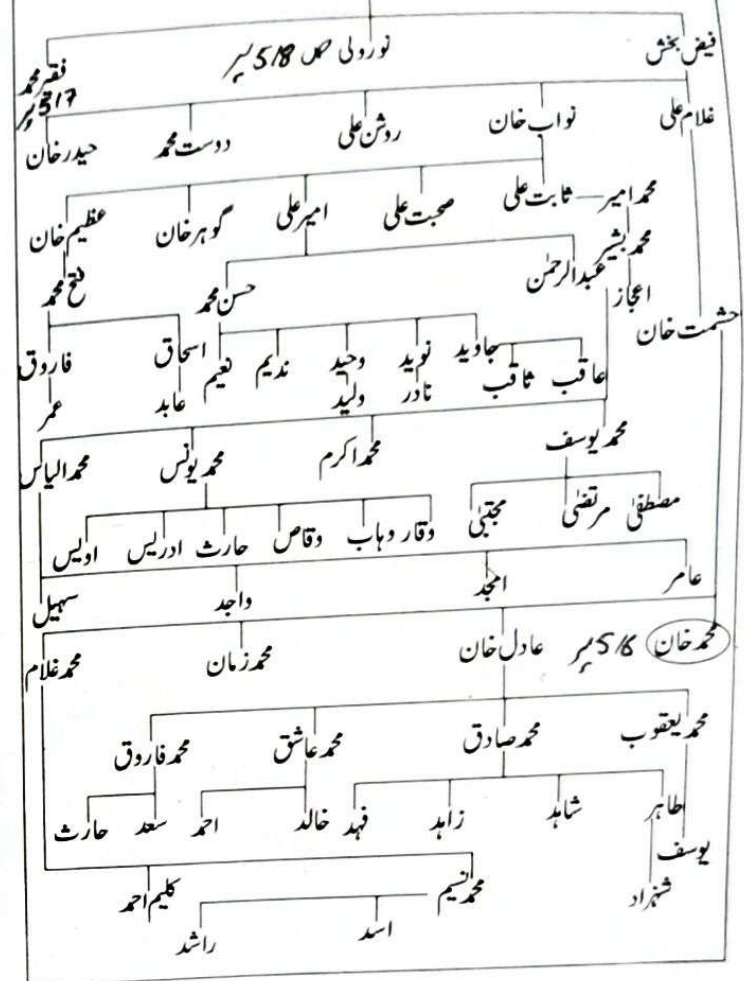 فیض بخش نور ولی 518 فقیر محمد
517
غلام علی نواب خان روشن علی دوست محمد حیدر خان
محمد امیر ثابت علی صحبت علی امیر علی گوہر خان عظیم خان
محمد بشیر
اعجاز عبدالرحمٰن حسن محمد فتح محمد
حشمت خان
عاقب ثاقب جاوید نوید وحید ندیم نعیم اسحاق فاروق
نادر ولید عابد عمر
محمد یوسف محمد اکرم محمد یونس محمد الیاس
مصطفیٰ مرتضیٰ مجتبیٰ وقار وہاب وقاص حارث ادریس اویس
عامر امجد واجد سہیل
محمد خان 516 عادل خان محمد زمان محمد غلام
محمد یعقوب محمد صادق محمد عاشق محمد فاروق
طاہر شاہد زاہد فہد خالد احمد سعد حارث
یوسف
شہزاد محمد نسیم کلیم احمد
اسد راشد